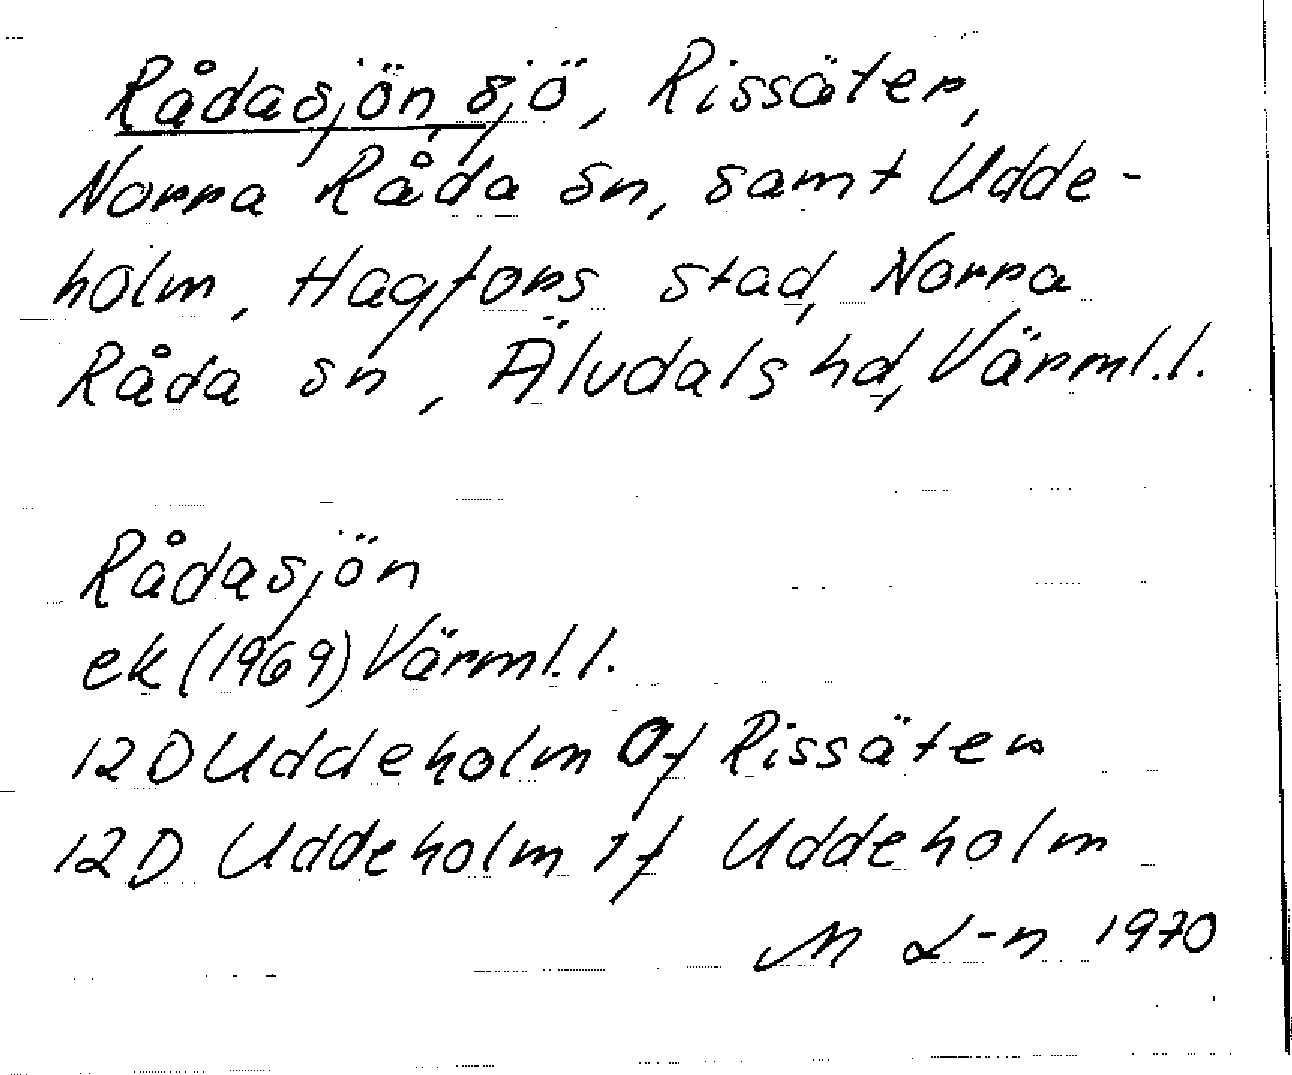 Rådasjön, sjö, Rissäter,
Norra Råda sn, samt Udde-
holm, Hagfors stad, Norra
Råda sn, Älvdals hd, Värml.l.
Rådasjön
ek (1969) Värml.l.
12D Uddeholm 0f Rissäter
12D Uddeholm 1f Uddeholm
M L-n 1970